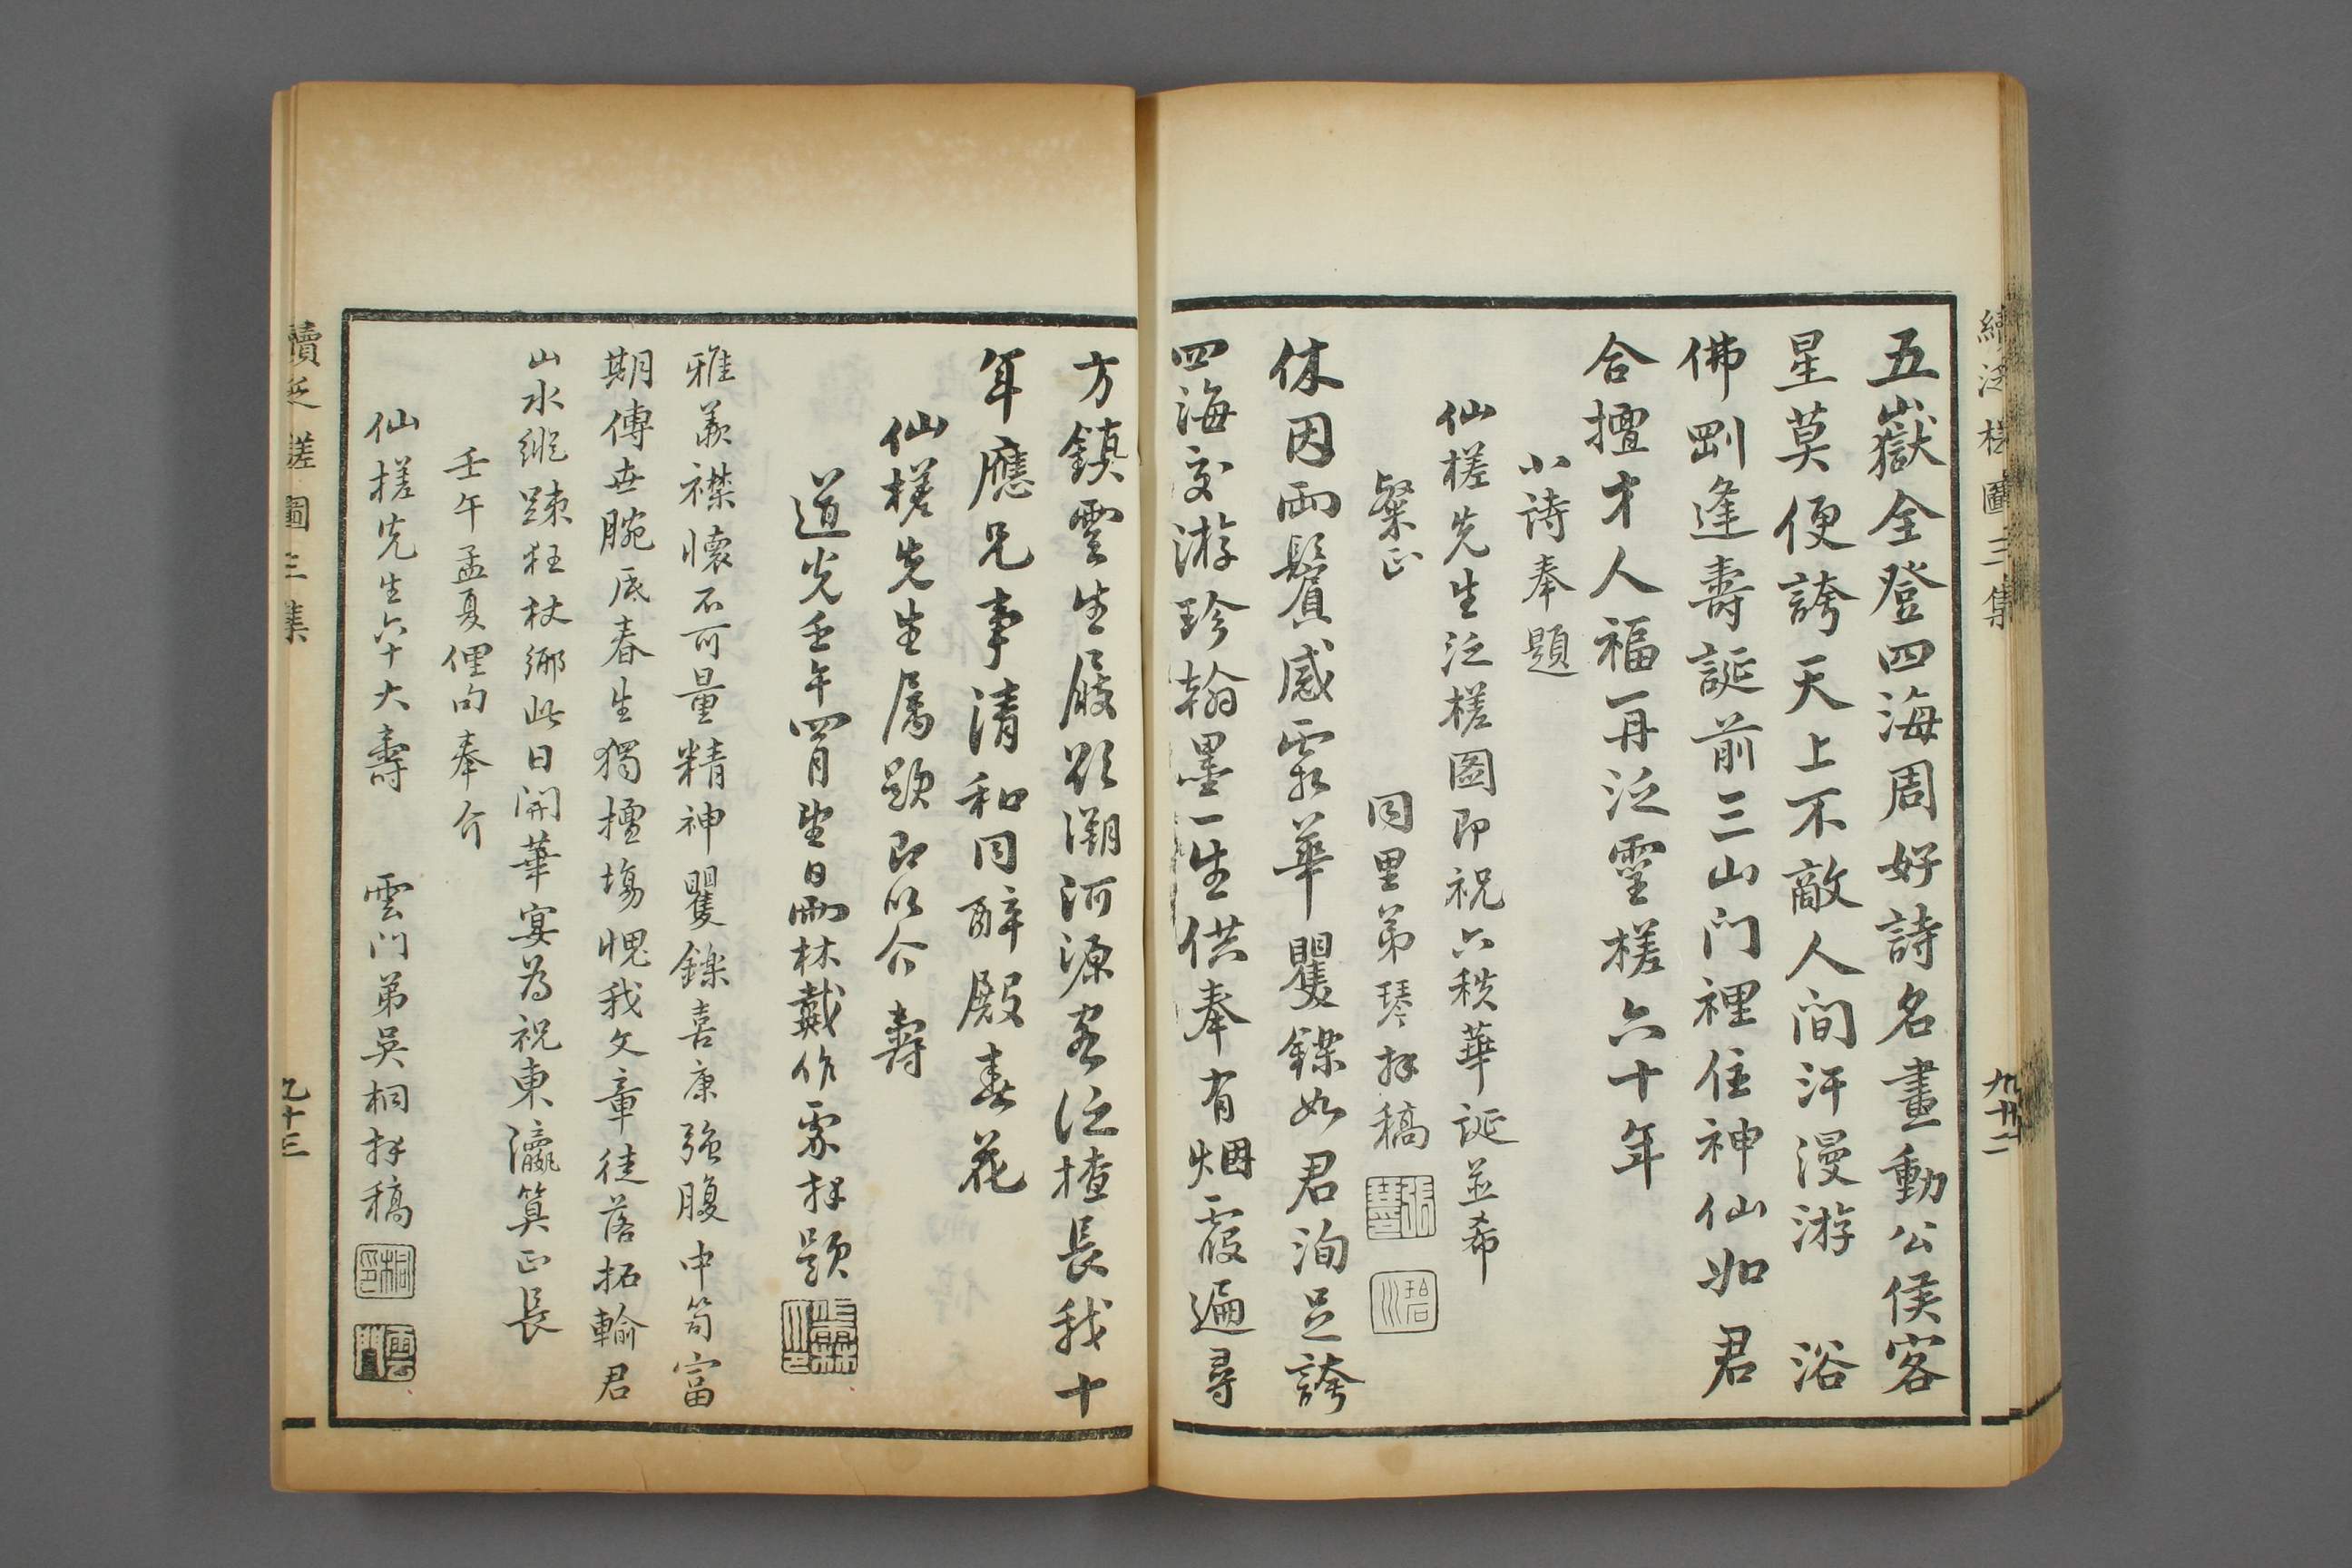 續泛槎圖三集
九十二
五嶽全登四海周好詩名畫動公侯客
星莫便誇天上不敵人間汗漫游 浴
佛剛逢壽誕前三山门裡住神仙如君
合擅才人福再泛靈槎六十年
小詩奉題
仙槎先生泛槎圖即祝六秩華誕並希
粲正
同里弟琴拜稿
休因兩鬢感霜華矍鑠如君洵足誇
四海交游珍翰墨一生供奉有烟霞遍尋
方鎮雲生屐欲溯河源客泛楂長我十
年應兄事清和同醉殿春花
仙槎先生屬題即以介壽
道光壬午四月生日刪林戴作霖拜題
雅羨襟懷不可量精神矍鑠喜康強腹中笥富
期傳世腕底春生獨擅塲愧我文章徒落拓輸君
山水縱疎狂杖鄉此日開華宴為祝東瀛算正長
壬午孟夏俚句奉介
仙槎先生六十大壽
雲门弟吳桐拜稿
桐印
雲門
續泛槎圖三集
九十三